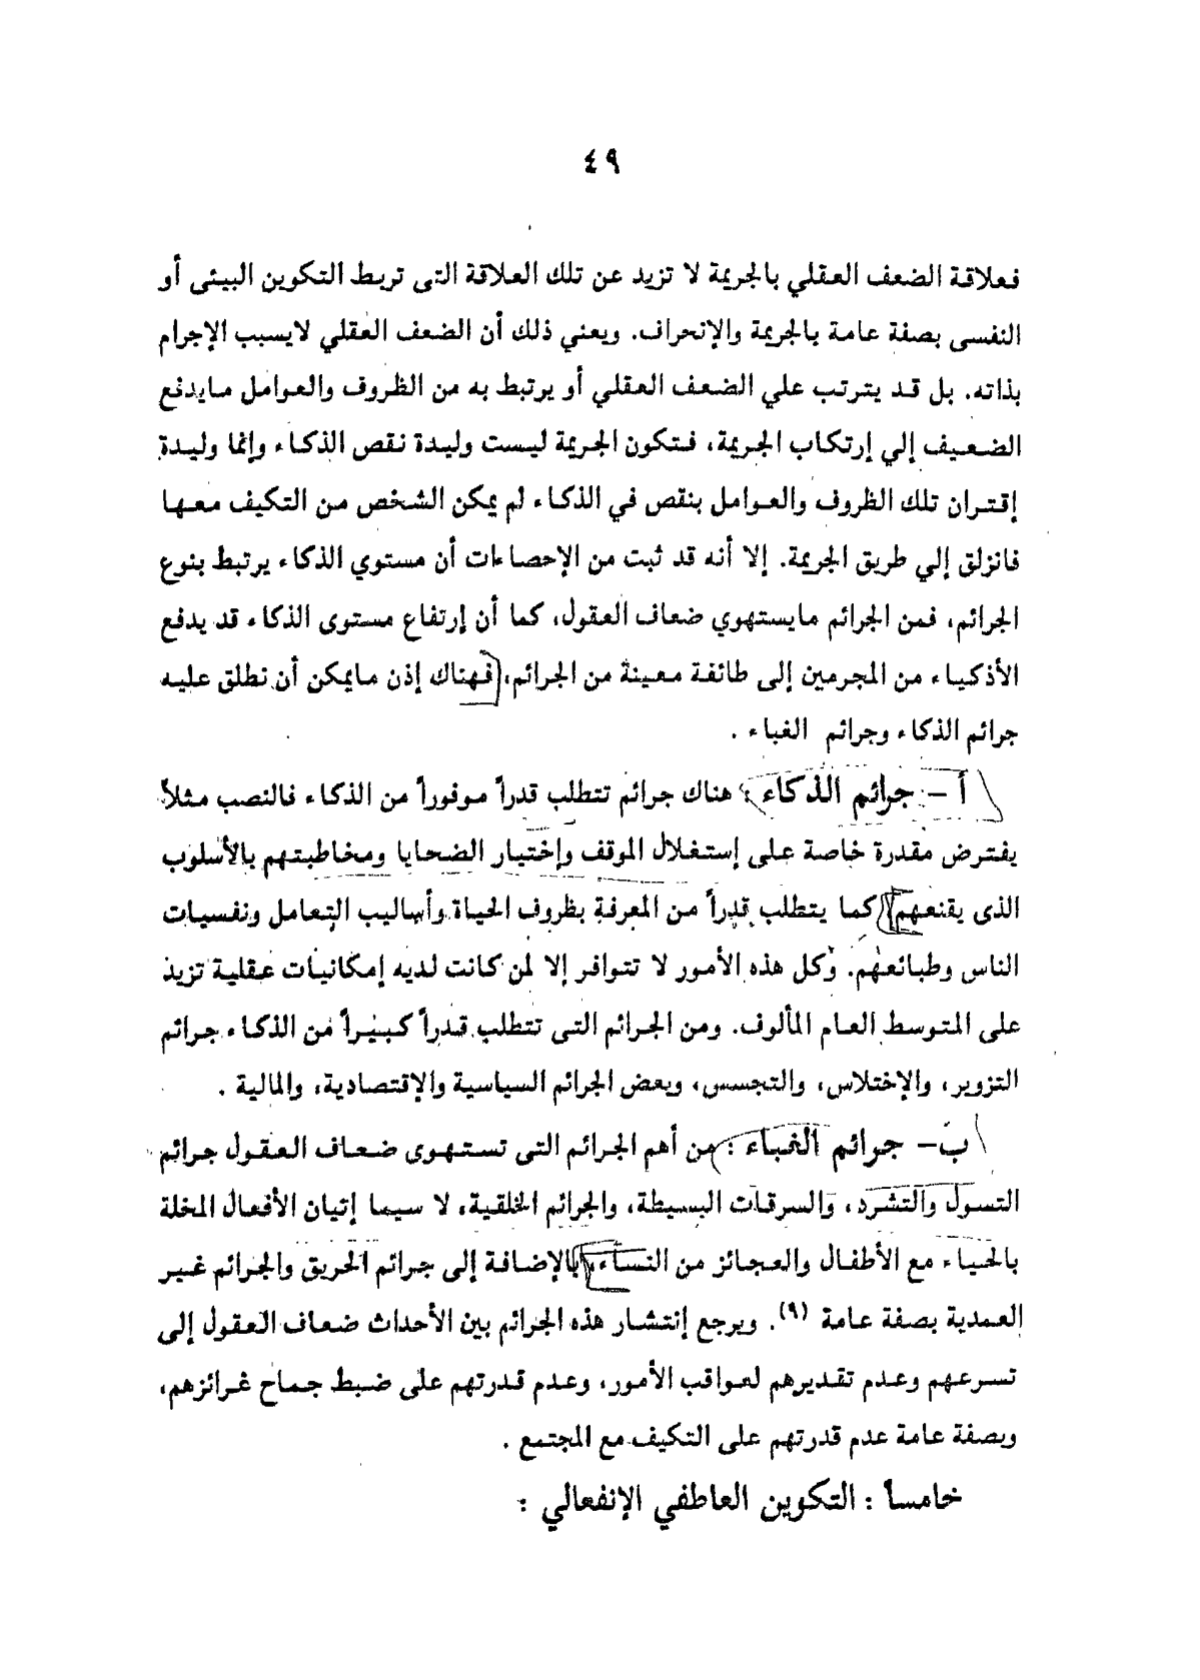 ٤٩
فعلاقة الضعف العقلي بالجريمة لا تزيد عن تلك العلاقة التى تربط التكوين البيئى أو
النفسى بصفة عامة بالجريمة والإنحراف. ويعني ذلك أن الضعف العقلي لايسبب الإجرام
بذاته. بل قد يترتب علي الضعف العقلي أو يرتبط به من الظروف والعوامل مايدفع
الضعيف إلي إرتكاب الجريمة، فتكون الجريمة ليست وليدة نقص الذكاء وإنما وليدة
إقتران تلك الظروف والعوامل بنقص في الذكاء لم يمكن الشخص من التكيف معها
فانزلق إلي طريق الجريمة. إلا أنه قد ثبت من الإحصاءات أن مستوي الذكاء يرتبط بنوع
الجرائم، فمن الجرائم مايستهوي ضعاف العقول، كما أن إرتفاع مستوى الذكاء قد يدفع
الأذكياء من المجرمين إلى طائفة معينة من الجرائم، فهناك إذن مايمكن أن نطلق عليه
جرائم الذكاء وجرائم الغباء .
أ - جرائم الذكاء : هناك جرائم تتطلب قدراً موفوراً من الذكاء فالنصب مثلاً
يفترض مقدرة خاصة على إستغلال الموقف وإختيار الضحايا ومخاطبتهم بالأسلوب
الذى يقنعهم كما يتطلب قدراً من المعرفة بظروف الحياة وأساليب التعامل ونفسيات
الناس وطبائعهم. وكل هذه الأمور لا تتوافر إلا لمن كانت لديه إمكانيات عقلية تزيد
على المتوسط العام المألوف. ومن الجرائم التى تتطلب قدراً كبيراً من الذكاء جرائم
التزوير، والإختلاس، والتجسس، وبعض الجرائم السياسية والإقتصادية، والمالية .
ب- جرائم الغباء : من أهم الجرائم التى تستهوى ضعاف العقول جرائم
التسول والتشرد، والسرقات البسيطة، والجرائم الخلقية، لا سيما إتيان الأفعال المخلة
بالحياء مع الأطفال والعجائز من النساء، بالإضافة إلى جرائم الحريق والجرائم غير
العمدية بصفة عامة (٩). ويرجع إنتشار هذه الجرائم بين الأحداث ضعاف العقول إلى
تسرعهم وعدم تقديرهم لعواقب الأمور، وعدم قدرتهم على ضبط جماح غرائزهم،
وبصفة عامة عدم قدرتهم على التكيف مع المجتمع .
خامساً : التكوين العاطفي الإنفعالي :